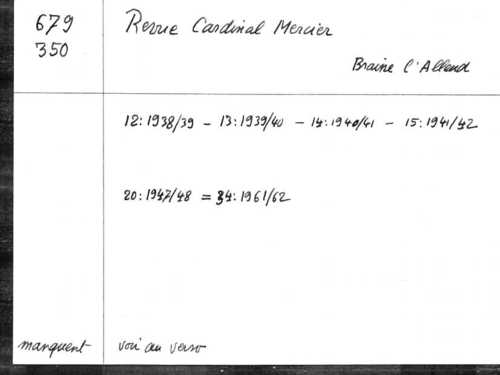 679 Revue Cardinal Mercier
350
Braine l'Alleud
12:1938/39 - 13:1939/40 - 14:1940/41 - 15:1941/42
20:1947/48 = 34:1961/62
manquent voir au verso